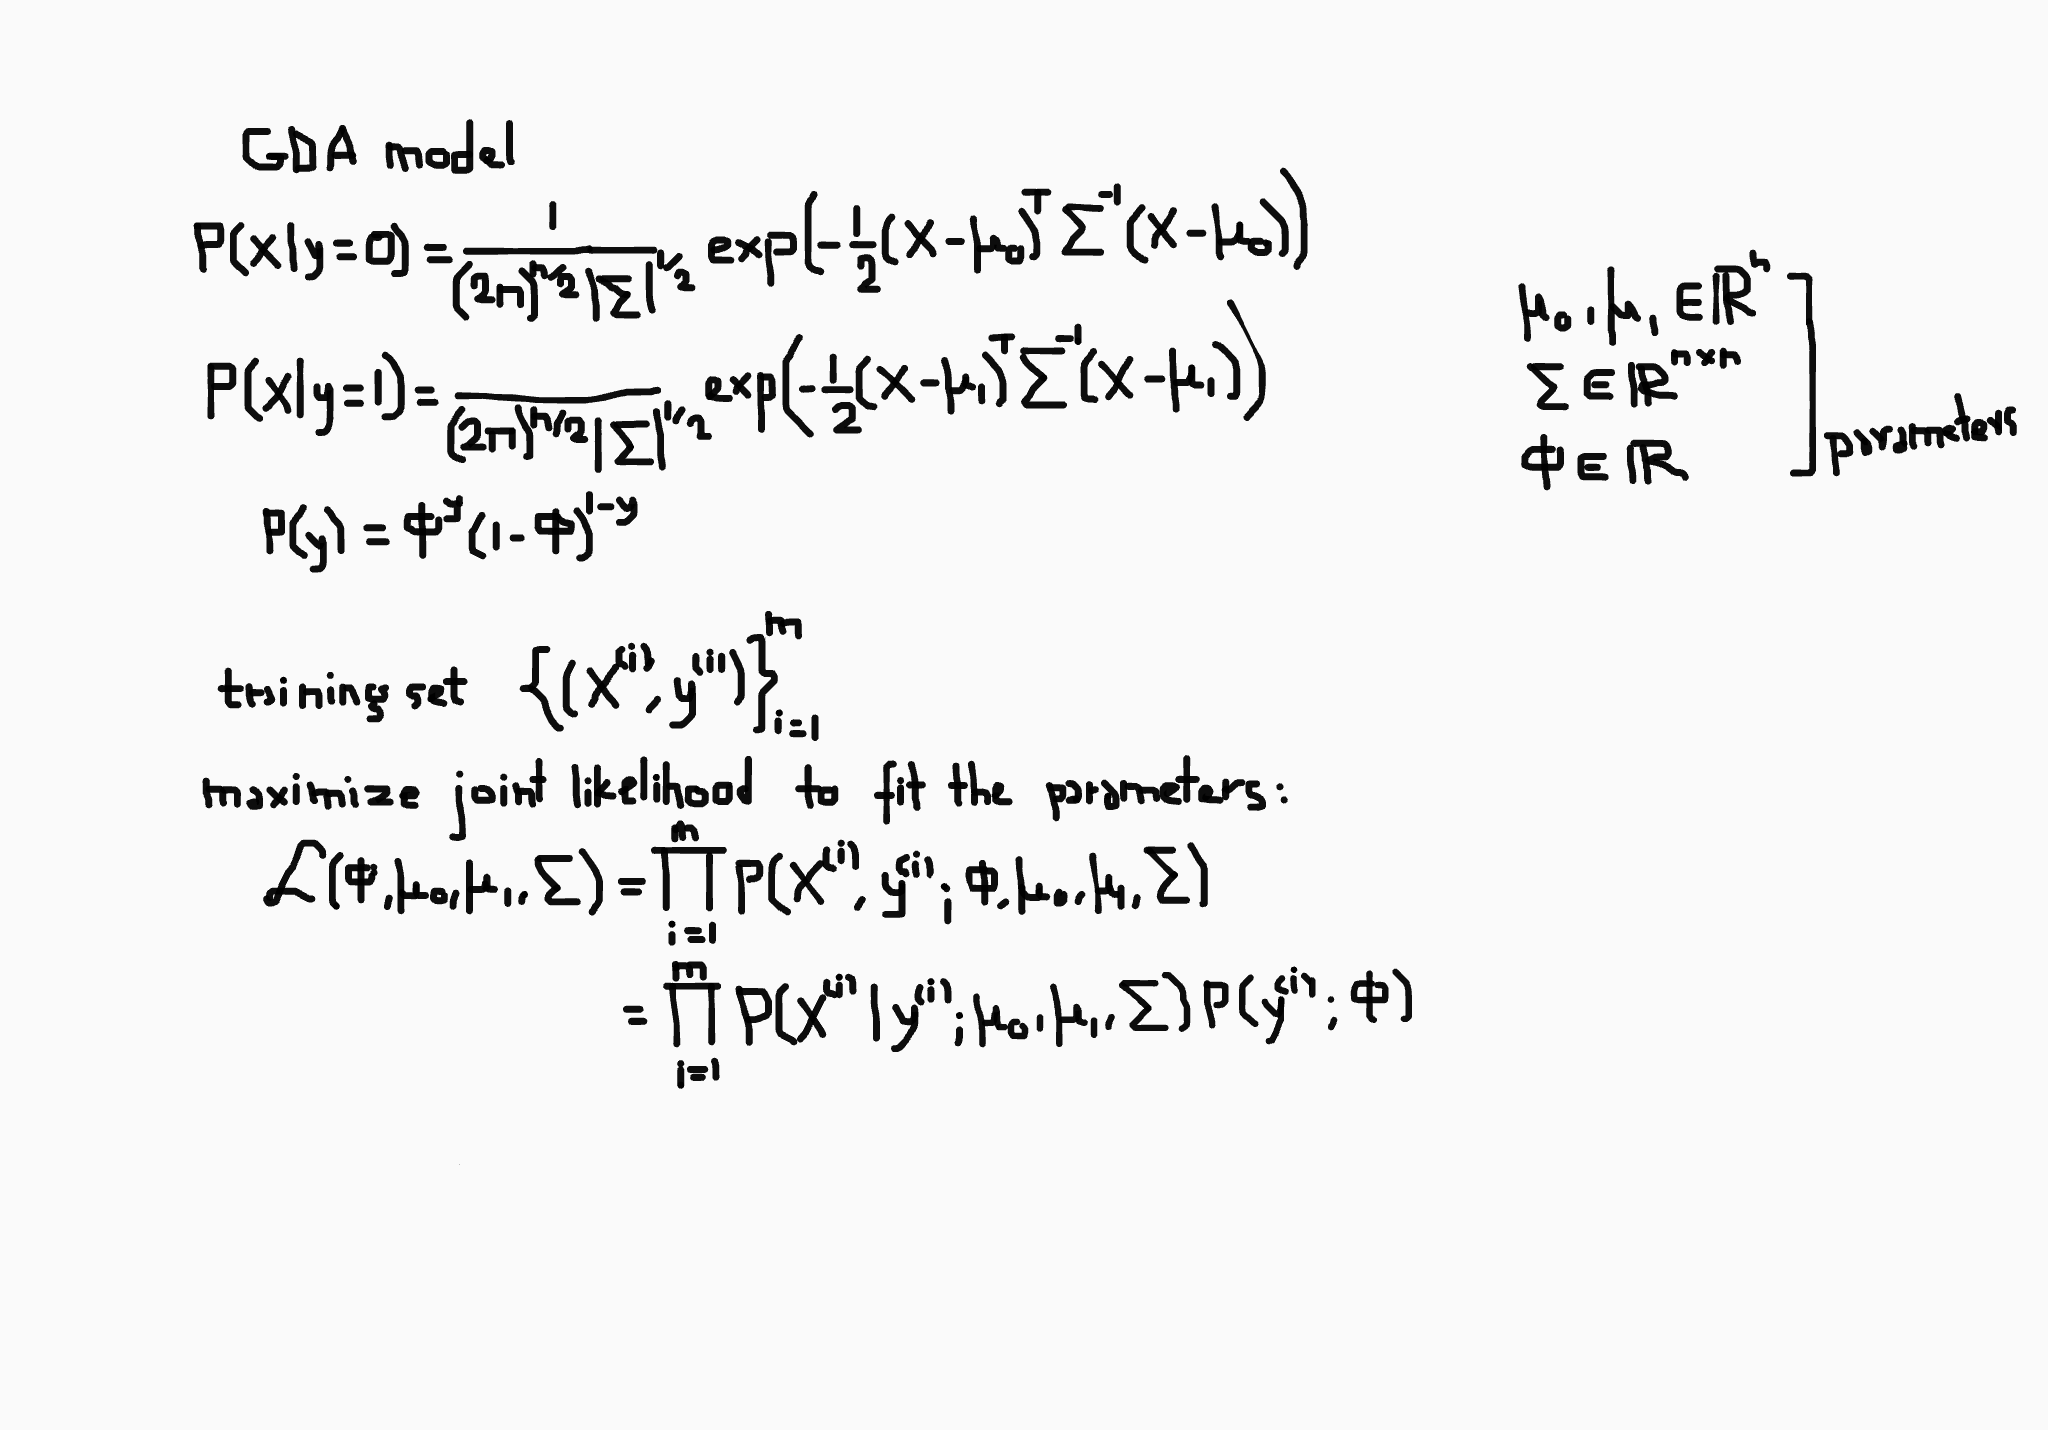 GDA model
P(x|y=0) = 1/((2π)^(n/2) |Σ|^(1/2)) exp(-1/2 (x-μ₀)ᵀ Σ⁻¹ (x-μ₀))
P(x|y=1) = 1/((2π)^(n/2) |Σ|^(1/2)) exp(-1/2 (x-μ₁)ᵀ Σ⁻¹ (x-μ₁))
P(y) = Φ^y (1-Φ)^(1-y)
μ₀, μ₁ ∈ ℝⁿ
Σ ∈ ℝ^(n×n)
Φ ∈ ℝ
parameters
training set {(x^(i), y^(i))}_{i=1}^m
maximize joint likelihood to fit the parameters:
ℒ(Φ, μ₀, μ₁, Σ) = ∏_{i=1}^m P(x^(i), y^(i); Φ, μ₀, μ₁, Σ)
= ∏_{i=1}^m P(x^(i) | y^(i); μ₀, μ₁, Σ) P(y^(i); Φ)